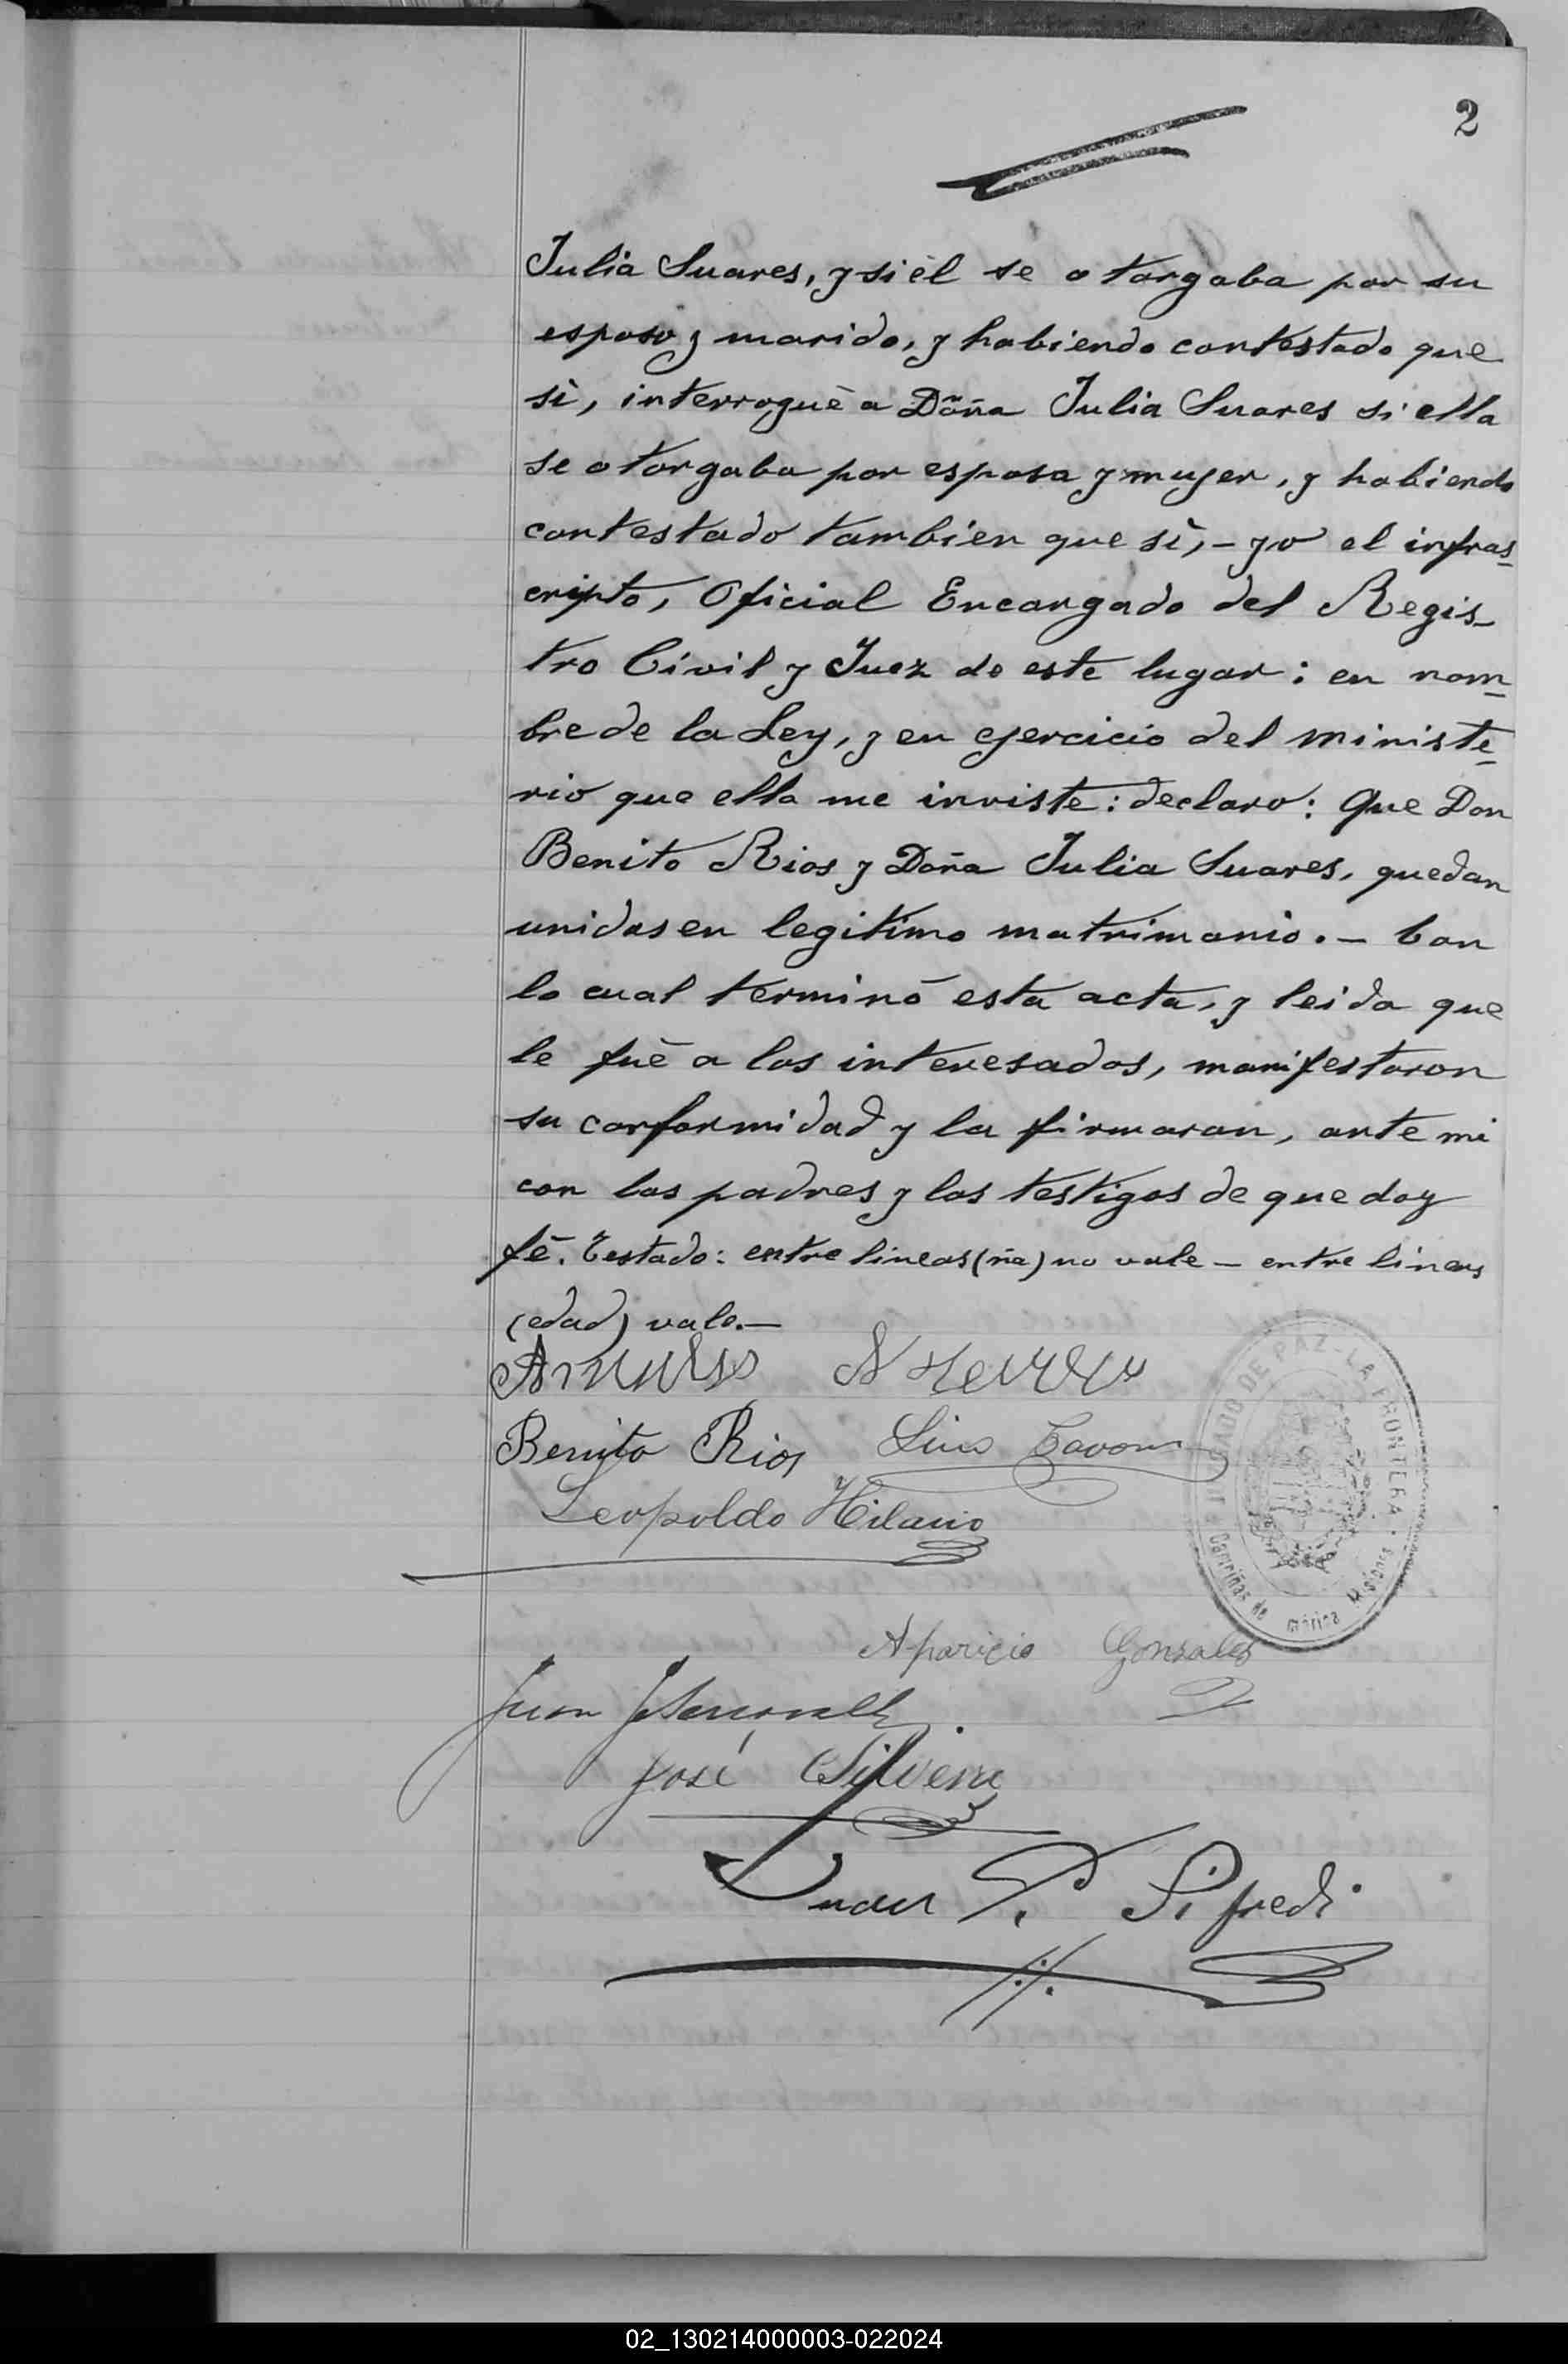 2
Julia Suares, y si èl se otorgaba por su
esposo y marido, y habiendo contestado que
sì, interroguè a Doña Julia Suares si ella
se otorgaba por esposa y mujer, y habiendo
contestado tambien que sì, - yo el infras-
cripto, Oficial Encargado del Regis-
tro Civil y Juez de este lugar: en nom-
bre de la Ley, y en ejercicio del ministe-
rio que ella me inviste: declaro: Que Don
Benito Rios y Doña Julia Suares, quedan
unidos en legitimo matrimonio. - Con
lo cual terminó esta acta, y leida que
le fuè a los interesados, manifestaron
su conformidad y la firmaron, ante mi
con los padres y los testigos de que doy
fé. Testado: entre lineas (ña) no vale - entre lineas
(edad) vale. -
Benito Rios
Leopoldo Hilario
JUZGADO DE PAZ - LA FRONTERA
Campiñas de América Misiones
Aparicio Gonzales
Juan
José Silveira
Juan P. Sifredi
02_130214000003-022024